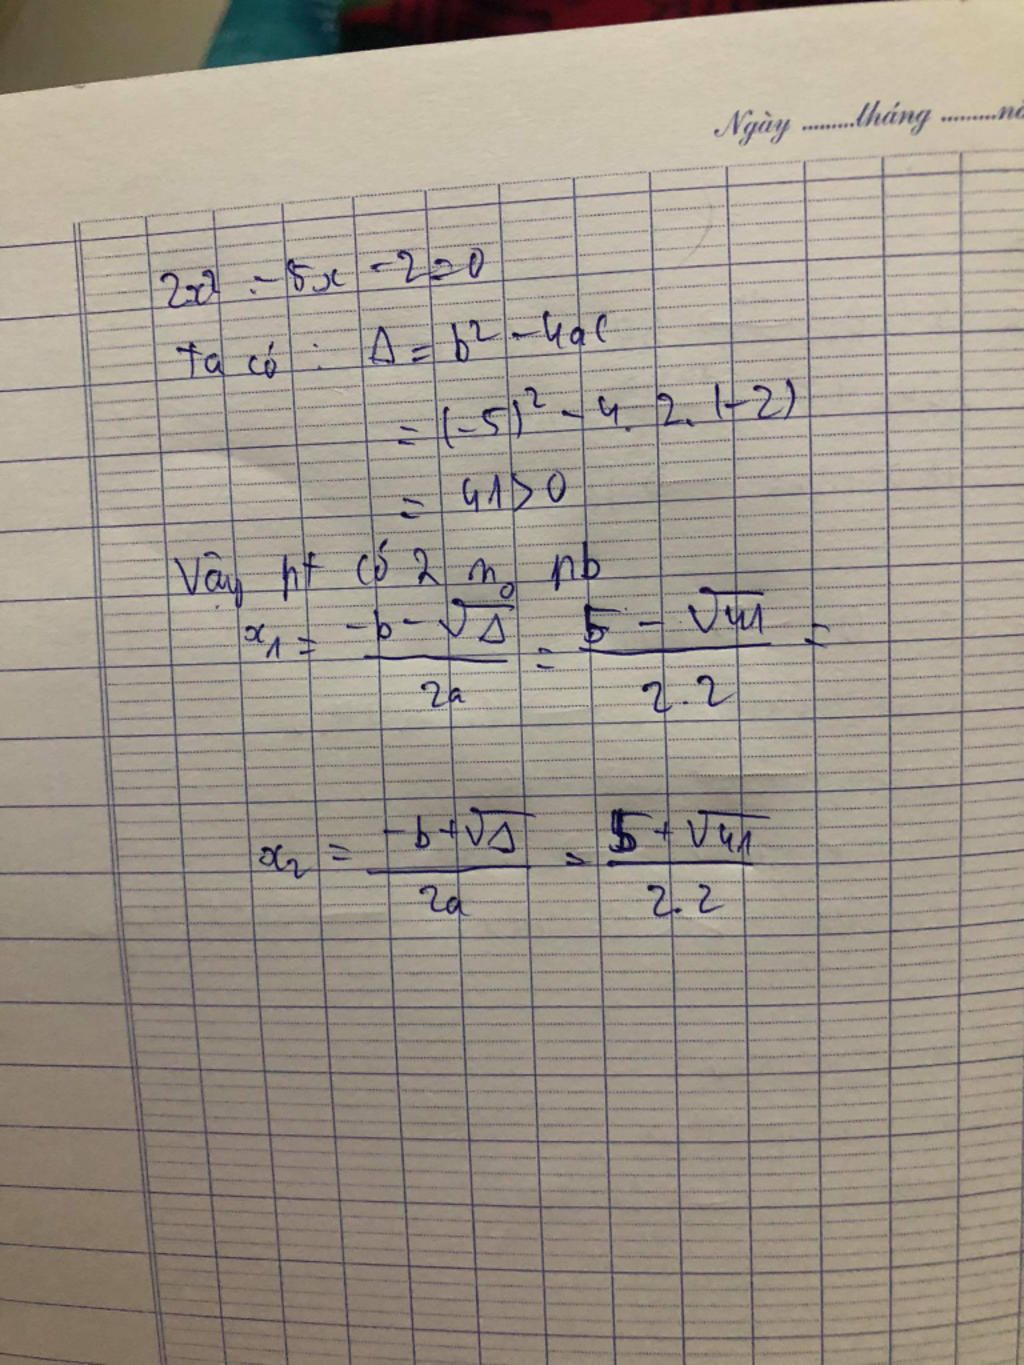 Ngày .........tháng .........nă
2x² - 5x - 2 = 0
Ta có : Δ = b² - 4ac
= (-5)² - 4. 2. (-2)
= 41 > 0
Vậy pt có 2 n₀ pb
x₁ = \frac{-b - √Δ}{2a} = \frac{5 - √41}{2.2} =
x₂ = \frac{-b + √Δ}{2a} = \frac{5 + √41}{2.2}